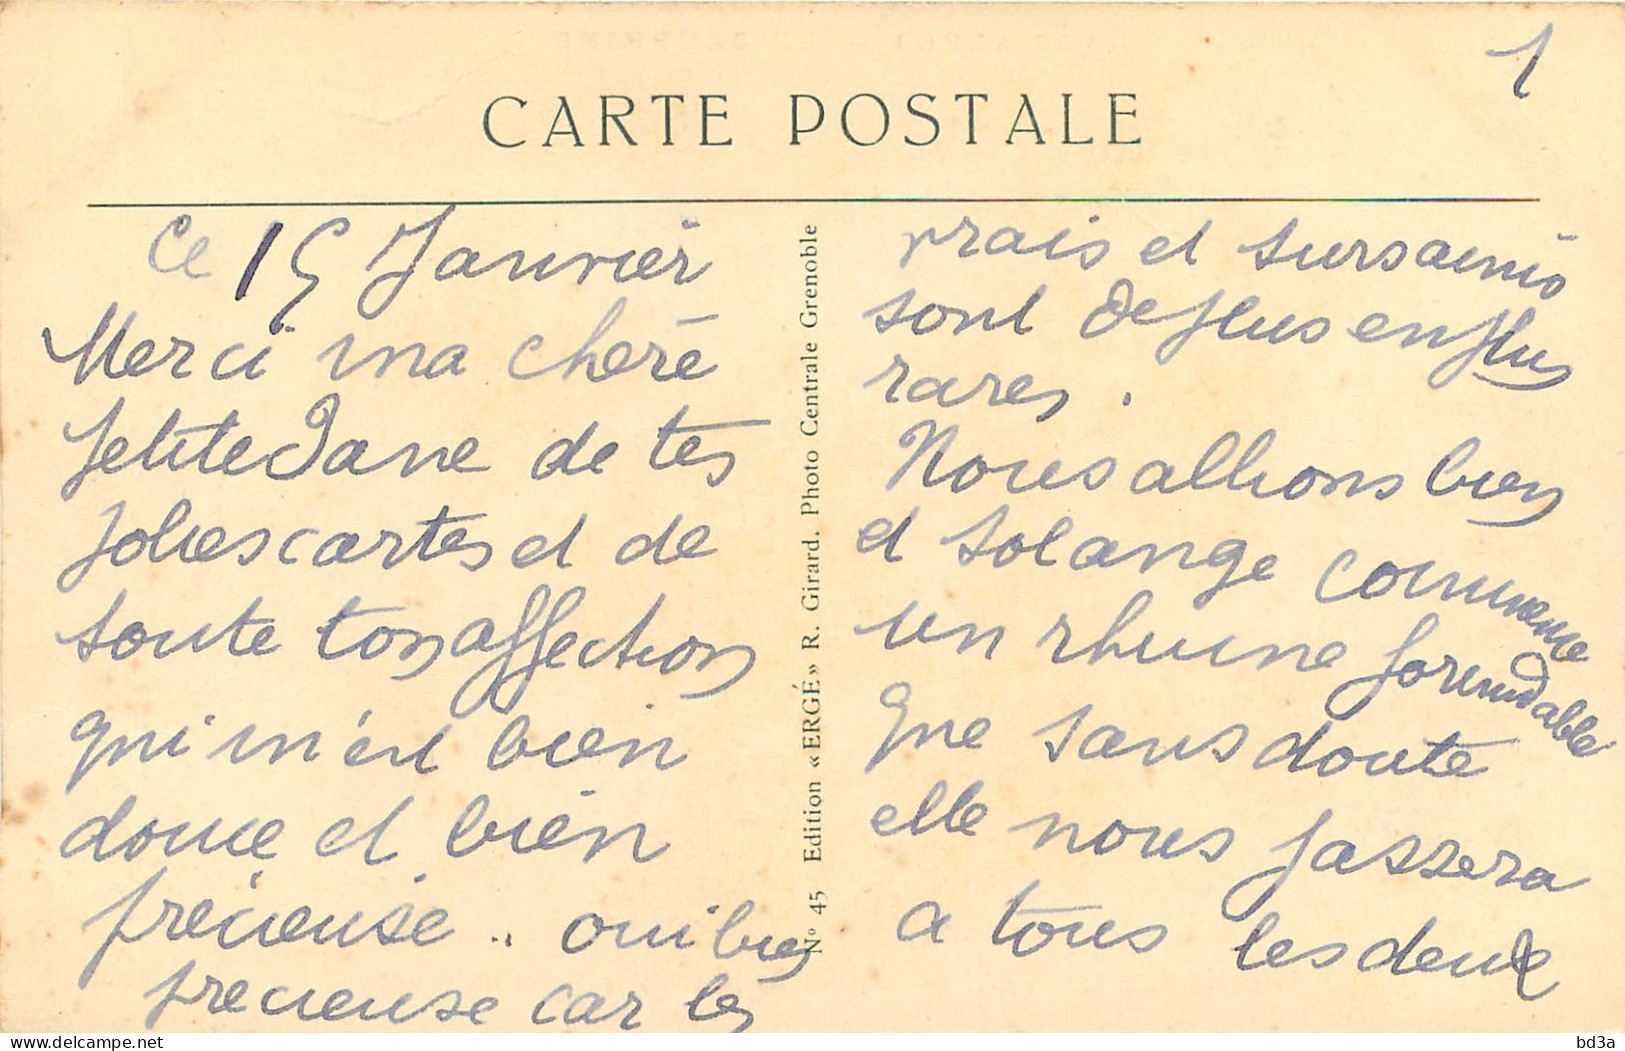 1
CARTE POSTALE
Ce 15 Janvier
Merci ma chère
petite Jane de tes
jolies cartes et de
toute ton affection
qui m'est bien
douce et bien
précieuse .. oui bien
precieuse car les
N° 45 Edition «ERGÉ» R. Girard. Photo Centrale Grenoble
vrais et surs amis
sont de plus en plus
rares .
Nous allions bien
et Solange commence
un rhume formidable
que sans doute
elle nous passera
a tous les deux
www.delcampe.net
bd3a